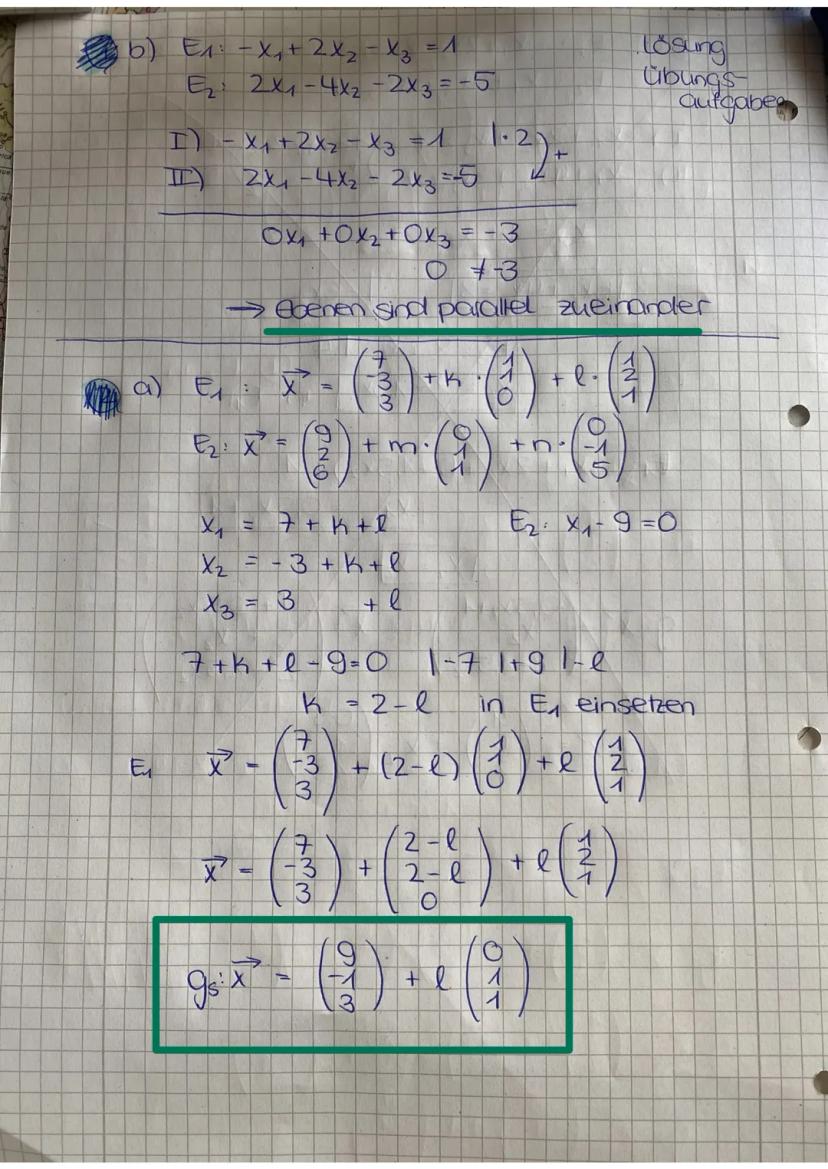 b) E₁: -x₁ + 2x₂ - x₃ = 1
E₂: 2x₁ - 4x₂ - 2x₃ = -5
Lösung
Übungs-
aufgaben
I) -x₁ + 2x₂ - x₃ = 1 |·2 +
II) 2x₁ - 4x₂ - 2x₃ = -5
0x₁ + 0x₂ + 0x₃ = -3
0 ≠ -3
→ Ebenen sind parallel zueinander
a) E₁: x⃗ = (7 -3 3) + k · (1 1 0) + l · (1 2 1)
E₂: x⃗ = (9 2 6) + m · (0 1 1) + n · (0 -1 5)
x₁ = 7 + k + l E₂: x₁ - 9 = 0
x₂ = -3 + k + l
x₃ = 3 + l
7 + k + l - 9 = 0 |-7 |+9 |-l
k = 2 - l in E₁ einsetzen
E₁ x⃗ = (7 -3 3) + (2-l) (1 1 0) + l (1 2 1)
x⃗ = (7 -3 3) + (2-l 2-l 0) + l (1 2 1)
gs: x⃗ = (9 -1 3) + l (0 1 1)